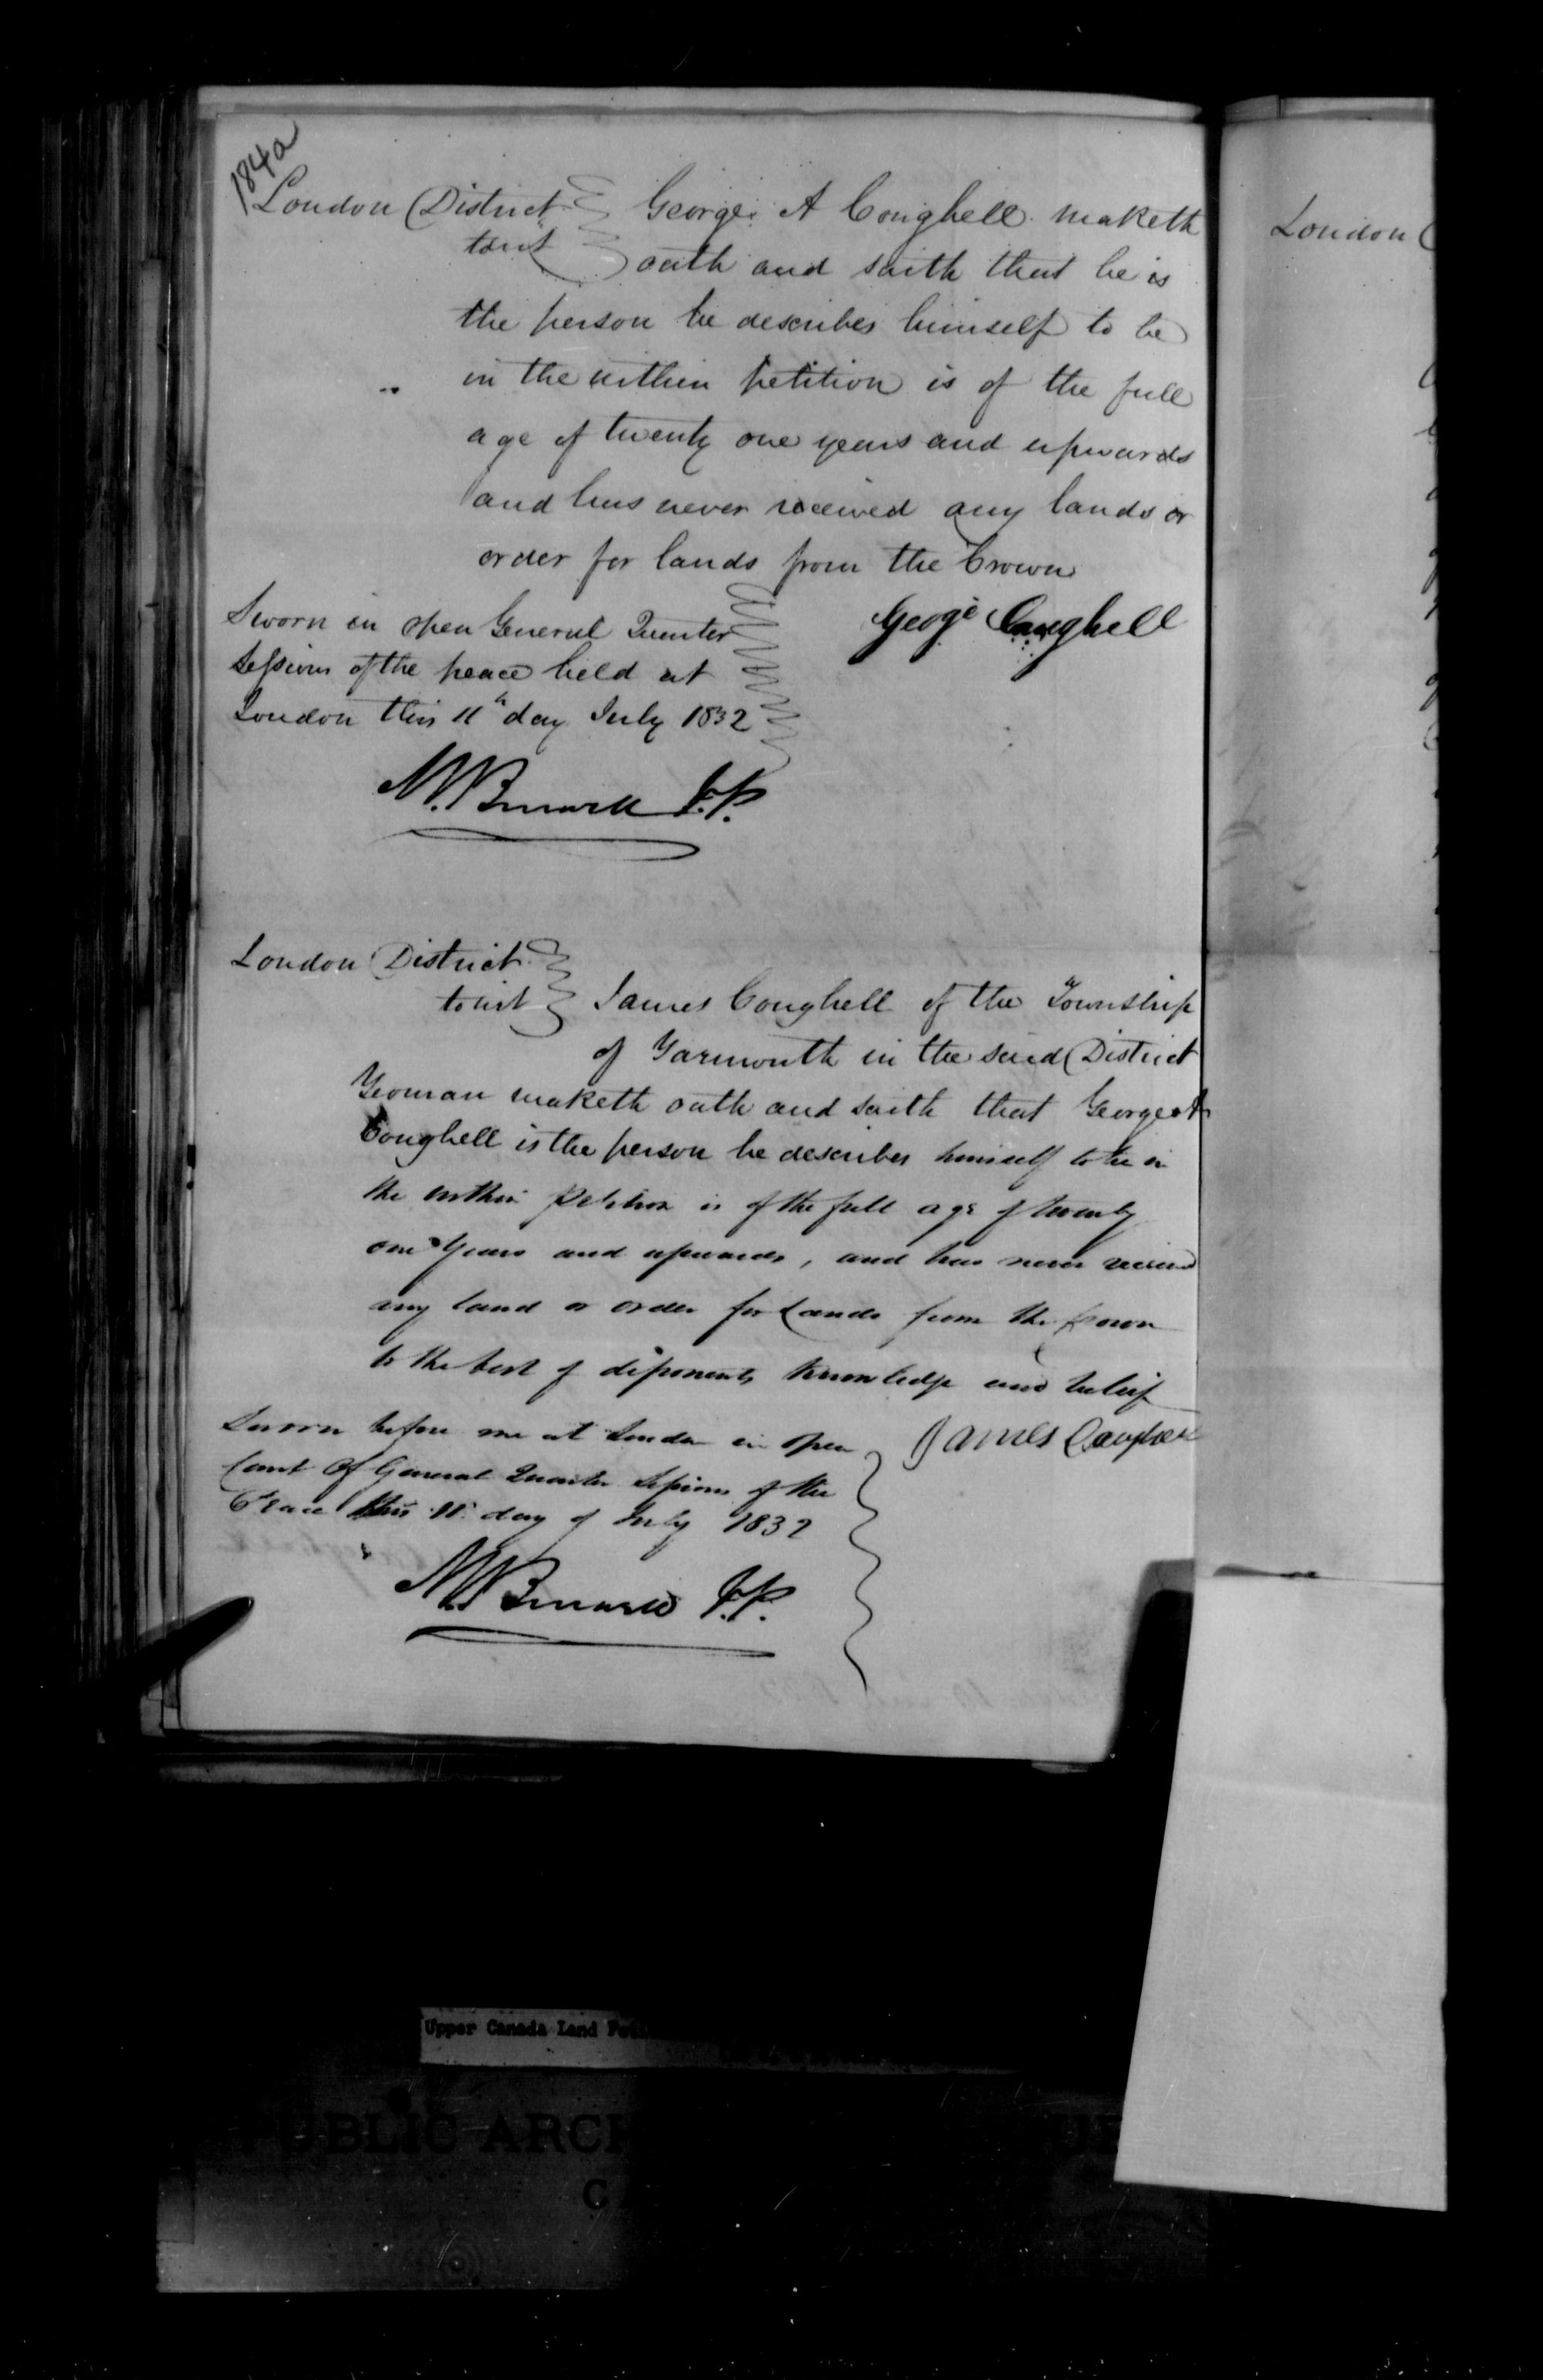 184a
London District George A Coughell maketh
to wit oath and saith that he is
the person he describes himself to be
in the within petition is of the full
age of twenty one years and upwards
and has never received any lands or
order for lands from the Crown
Sworn in open General Quarter
Sessions of the peace held at
London this 11th day July 1832
George Caughell
J.P.
London District
to wit James Coughell of the Township
of Yarmouth in the said District
Yeoman maketh oath and saith that George A
Coughell is the person he describes himself to be in
the within petition is of the full age of twenty
one Years and upwards, and has never received
any land or order for Lands from the Crown
to the best of deponents knowledge and belief
Sworn before me at London in open
Court of General Quarter Sessions of the
Peace this 11th day of July 1832
James Caughell
J.P.
London
Upper Canada Land
PUBLIC ARCH
C